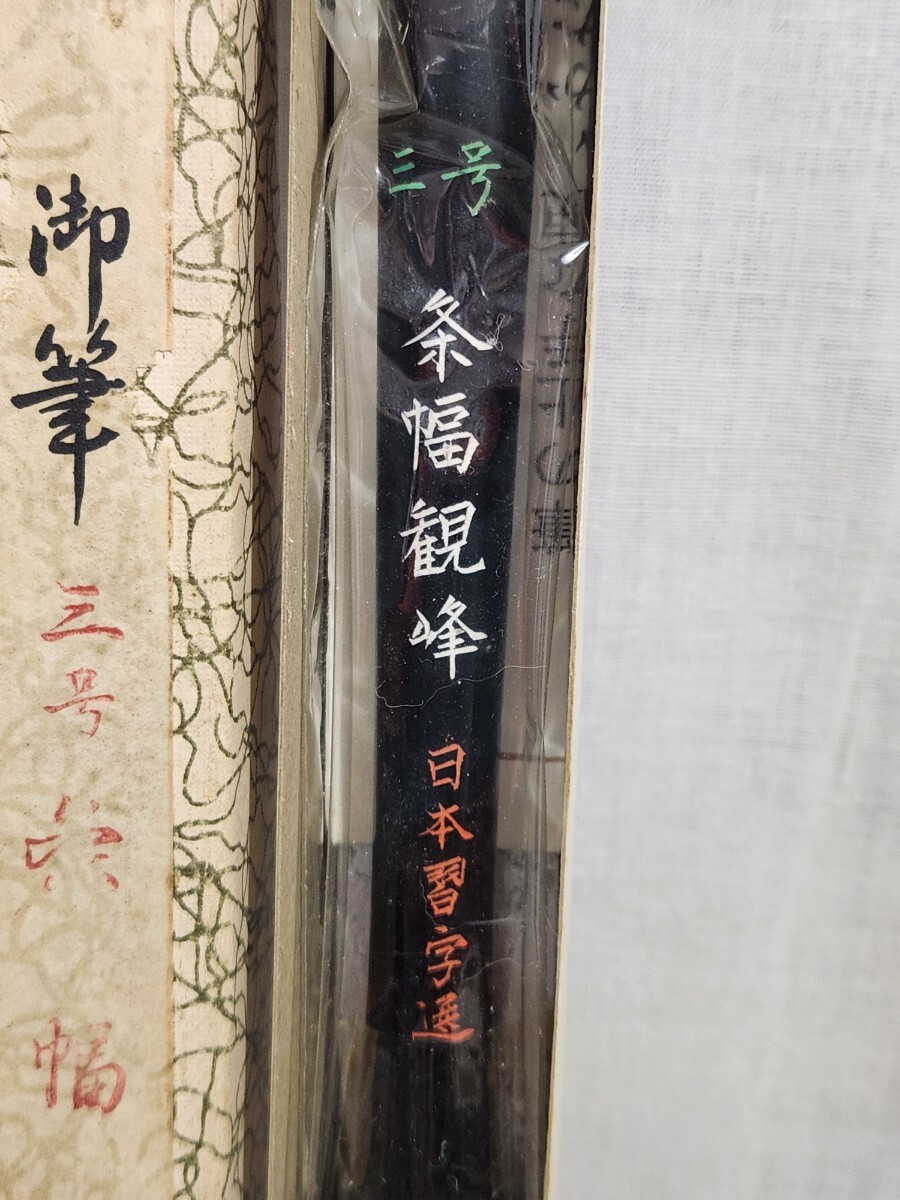 御筆
三号
幅
三号
条幅観峰
日本習字選